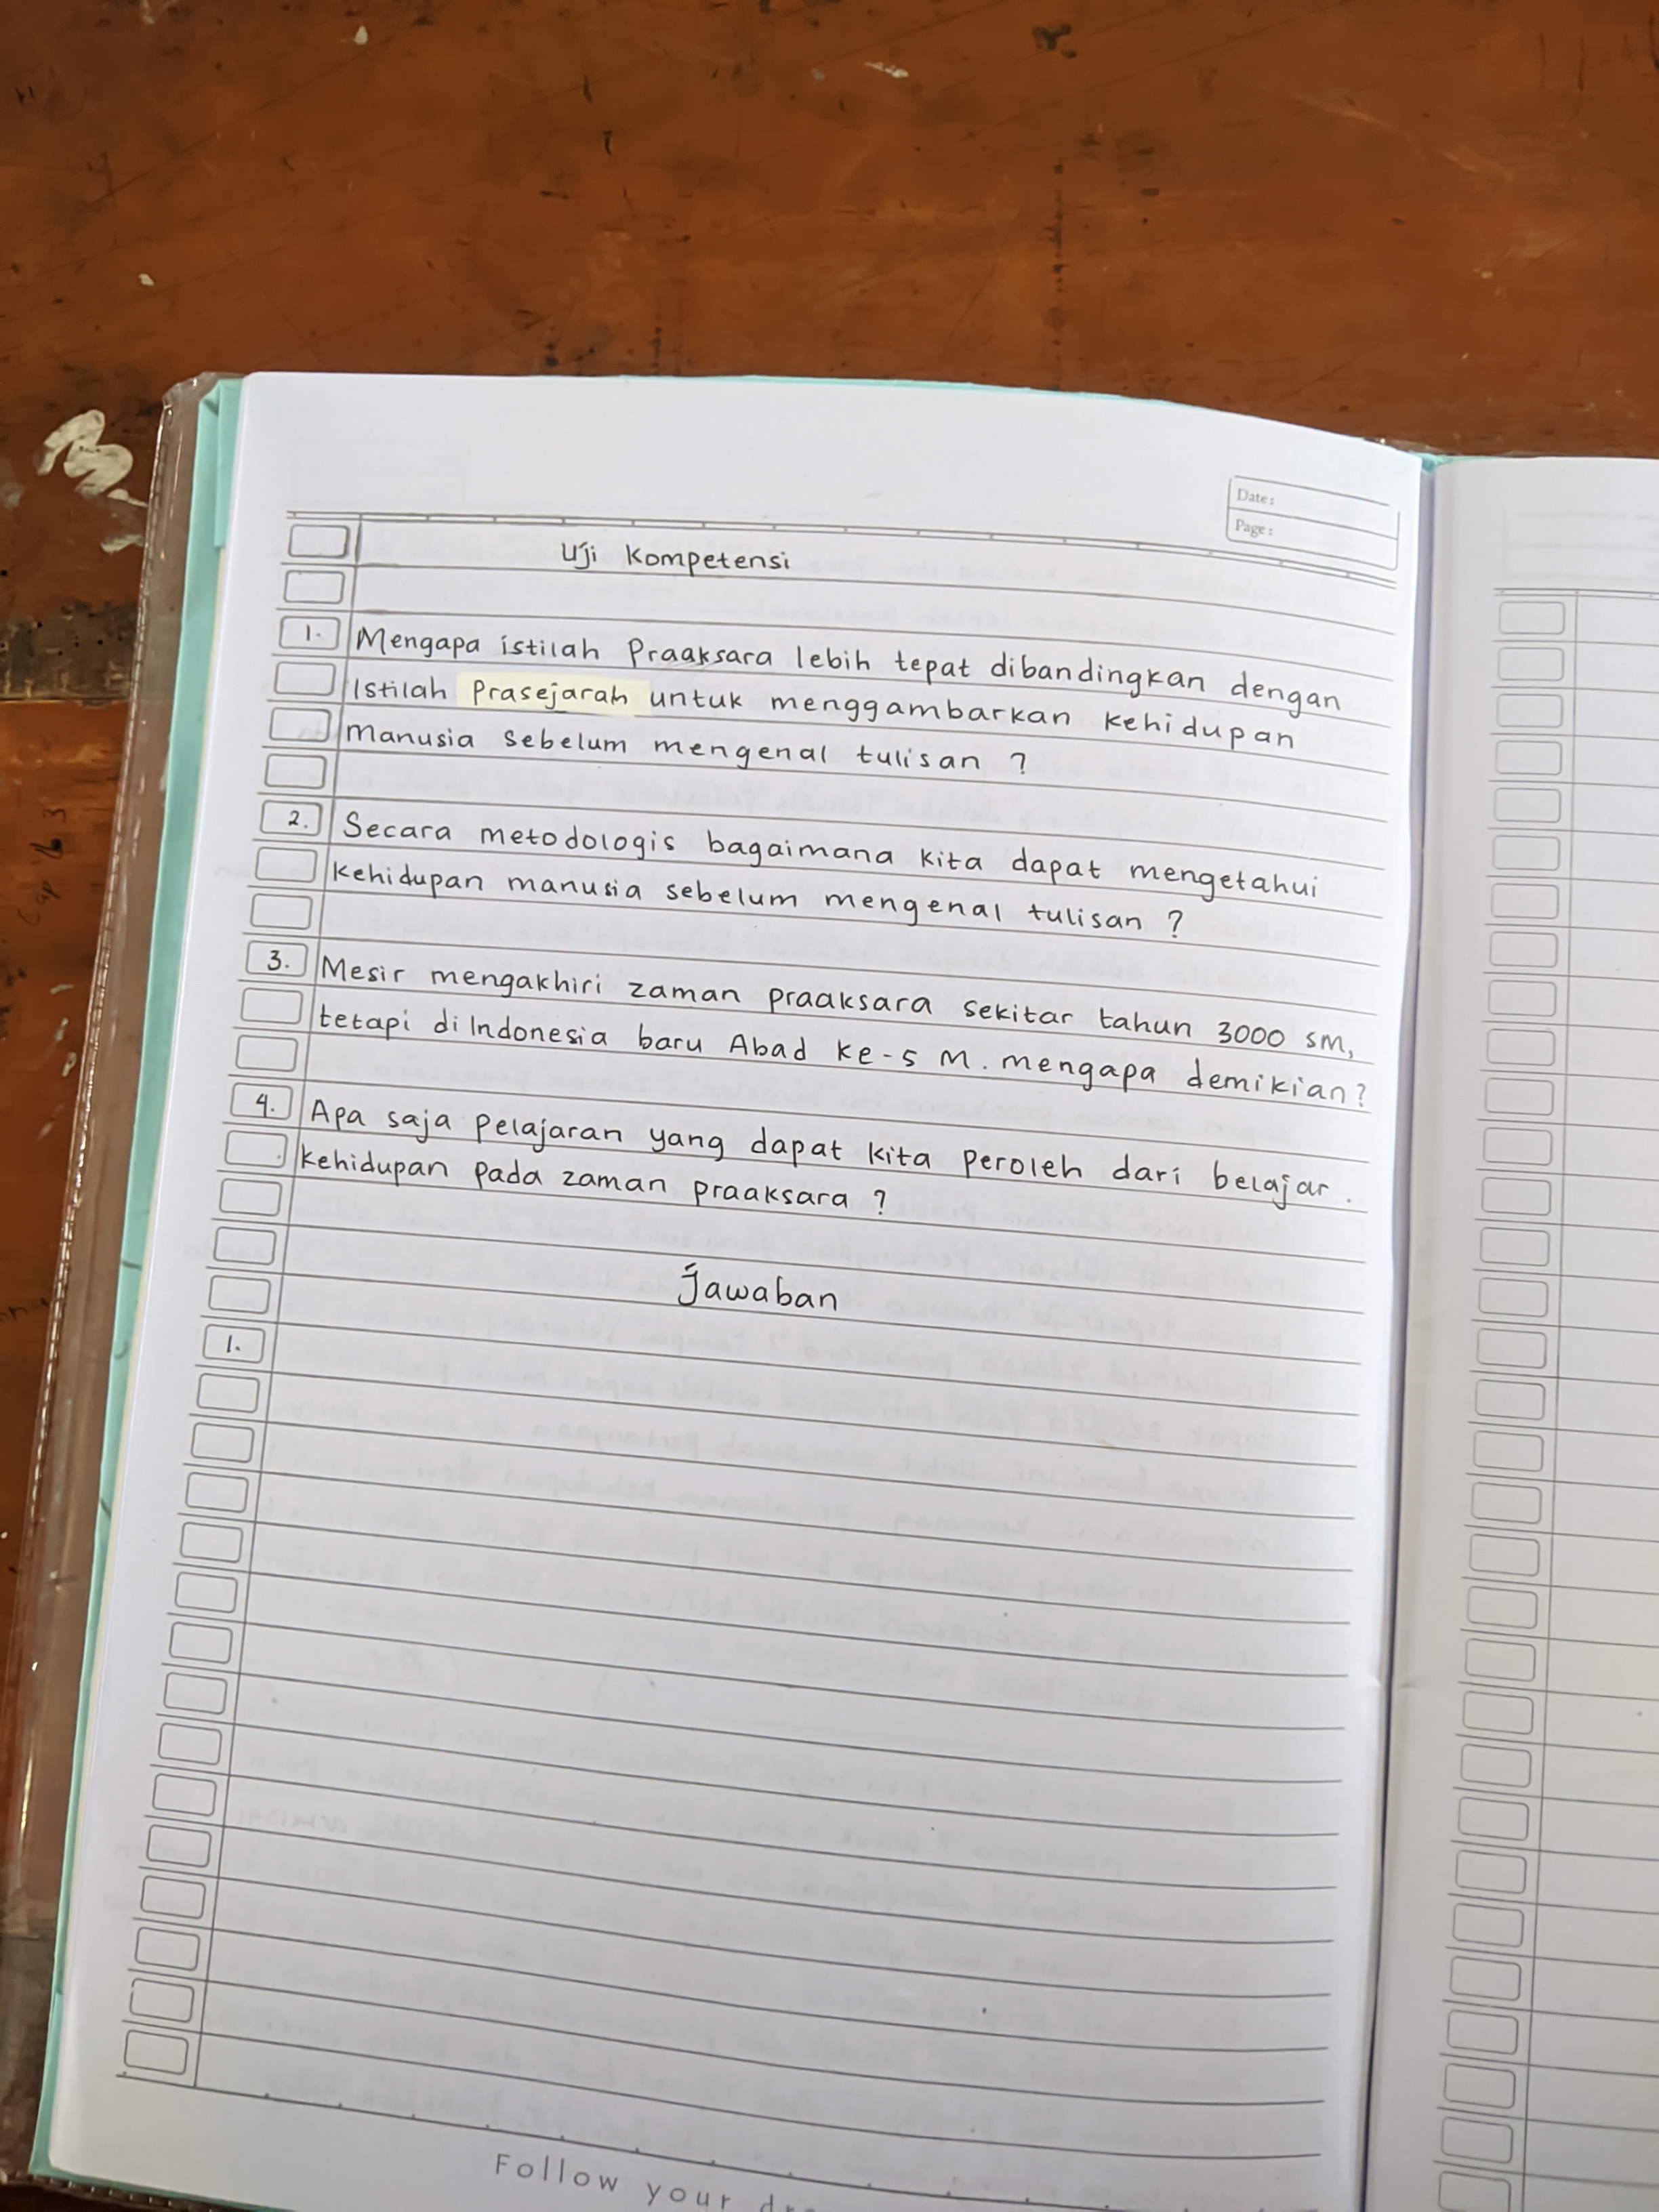 Date:
Page:
Uji Kompetensi
1. Mengapa istilah Praaksara lebih tepat dibandingkan dengan
Istilah Prasejarah untuk menggambarkan kehidupan
manusia sebelum mengenal tulisan ?
2. Secara metodologis bagaimana kita dapat mengetahui
kehidupan manusia sebelum mengenal tulisan ?
3. Mesir mengakhiri zaman praaksara sekitar tahun 3000 SM,
tetapi di Indonesia baru Abad ke-5 M. mengapa demikian?
4. Apa saja pelajaran yang dapat kita peroleh dari belajar.
kehidupan pada zaman praaksara ?
Jawaban
1.
Follow your